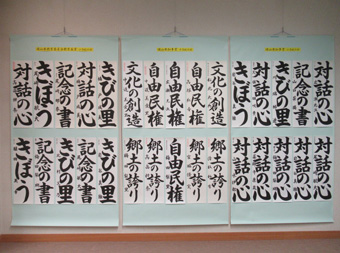 対話の心
記念の書
きびの里
対話の心
対話の心
対話の心
対話の心
対話の心
対話の心
対話の心
文化の創造
自由民権
自由民権
自由民権
文化の創造
郷土の誇り
郷土の誇り
自由民権
郷土の誇り
郷土の誇り
きびの里
対話の心
記念の書
きぼう
きぼう
きびの里
記念の書
きびの里
記念の書
きぼう